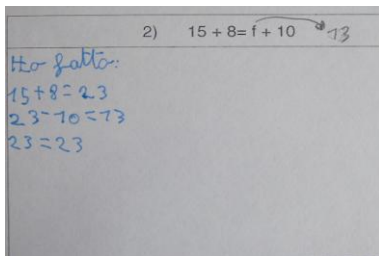 2) 15 + 8= f + 10 13
Ho fatto:
15+8=23
23-10=13
23=23